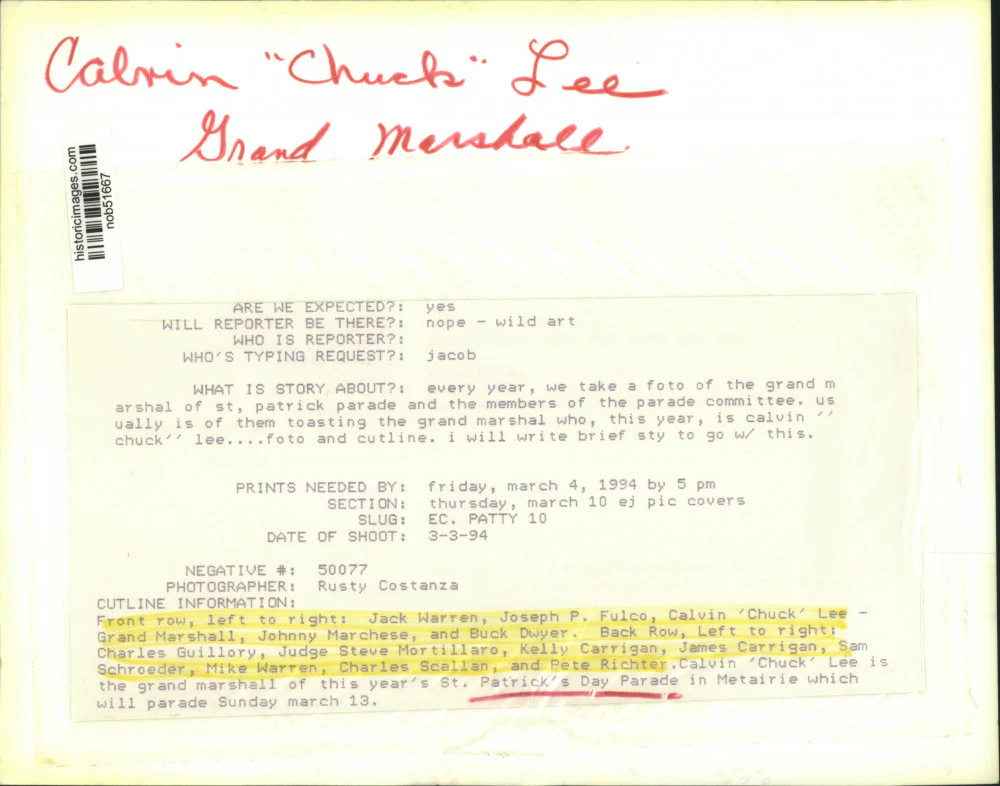 Calvin "Chuck" Lee
Grand Marshall
historicimages.com
nob51667
ARE WE EXPECTED?: yes
WILL REPORTER BE THERE?: nope - wild art
WHO IS REPORTER?:
WHO'S TYPING REQUEST?: jacob
WHAT IS STORY ABOUT?: every year, we take a foto of the grand m
arshal of st, patrick parade and the members of the parade committee. us
ually is of them toasting the grand marshal who, this year, is calvin ''
chuck'' lee....foto and cutline. i will write brief sty to go w/ this.
PRINTS NEEDED BY: friday, march 4, 1994 by 5 pm
SECTION: thursday, march 10 ej pic covers
SLUG: EC. PATTY 10
DATE OF SHOOT: 3-3-94
NEGATIVE #: 50077
PHOTOGRAPHER: Rusty Costanza
CUTLINE INFORMATION:
Front row, left to right: Jack Warren, Joseph P. Fulco, Calvin 'Chuck' Lee -
Grand Marshall, Johnny Marchese, and Buck Dwyer. Back Row, Left to right:
Charles Guillory, Judge Steve Mortillaro, Kelly Carrigan, James Carrigan, Sam
Schroeder, Mike Warren, Charles Scallan, and Pete Richter.Calvin 'Chuck' Lee is
the grand marshall of this year's St. Patrick's Day Parade in Metairie which
will parade Sunday march 13.